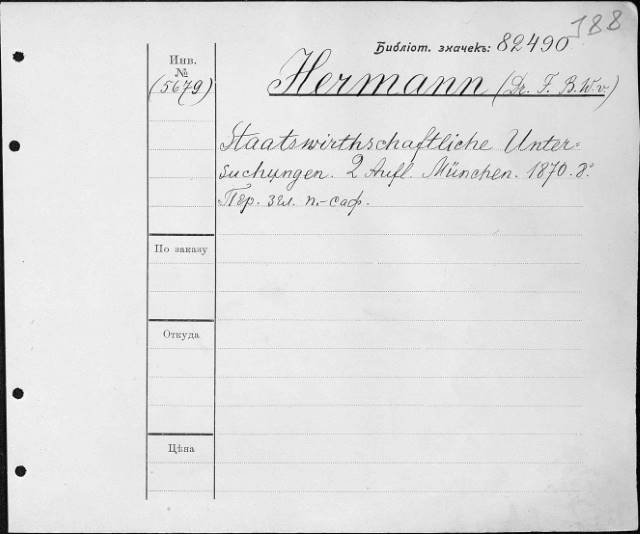 188
Библіот. значекъ: 82490
Инв.
№
(5679)
Hermann (Dr. F. B. W. v.)
Staatswirthschaftliche Unter-
suchungen. 2 Aufl. München. 1870. 8º
Пер. зел. п.-саф.
По заказу
Откуда
Цѣна